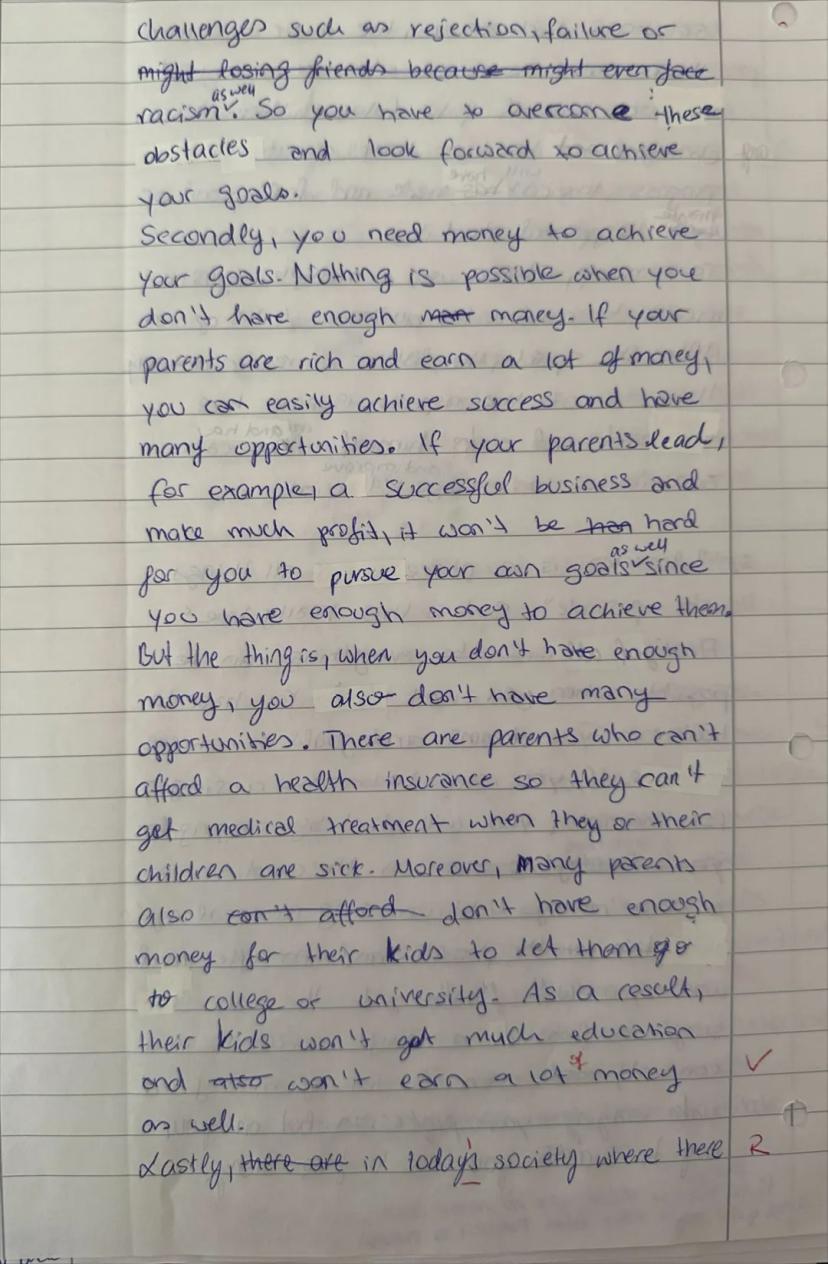 challenges such as rejection, failure or
might losing friends because might even face
racism as well. So you have to overcome these
obstacles and look forward to achieve
your goals.
Secondly, you need money to achieve
your goals. Nothing is possible when you
don't have enough money. If your
parents are rich and earn a lot of money,
you can easily achieve success and have
many opportunities. If your parents lead,
for example, a successful business and
make much profit, it won't be hard
for you to pursue your own goals as well since
you have enough money to achieve them.
But the thing is, when you don't have enough
money, you also don't have many
opportunities. There are parents who can't
afford a health insurance so they can't
get medical treatment when they or their
children are sick. Moreover, many parents
also can't afford don't have enough
money for their kids to let them go
to college or university. As a result,
their kids won't get much education
and also won't earn a lot of money √
as well.
Lastly, there are in today's society where there R